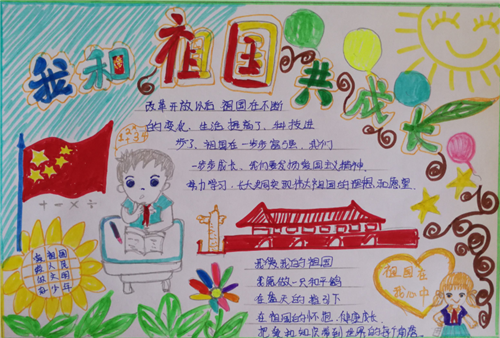 我和祖国共成长
改革开放以后 祖国在不断
的变化，生活提高了，科技进
步了，祖国在一步步富强，我们
一步步成长，我们要发扬爱国主义精神，
努力学习，长大成国实现伟大祖国的理想和愿望
+ 一 × ÷
我爱我的祖国
我愿做一只和平鸽
在蓝天的指引下
在祖国的怀抱 健康成长
把爱和知识带到世界的每个角落
祖国在
我心中